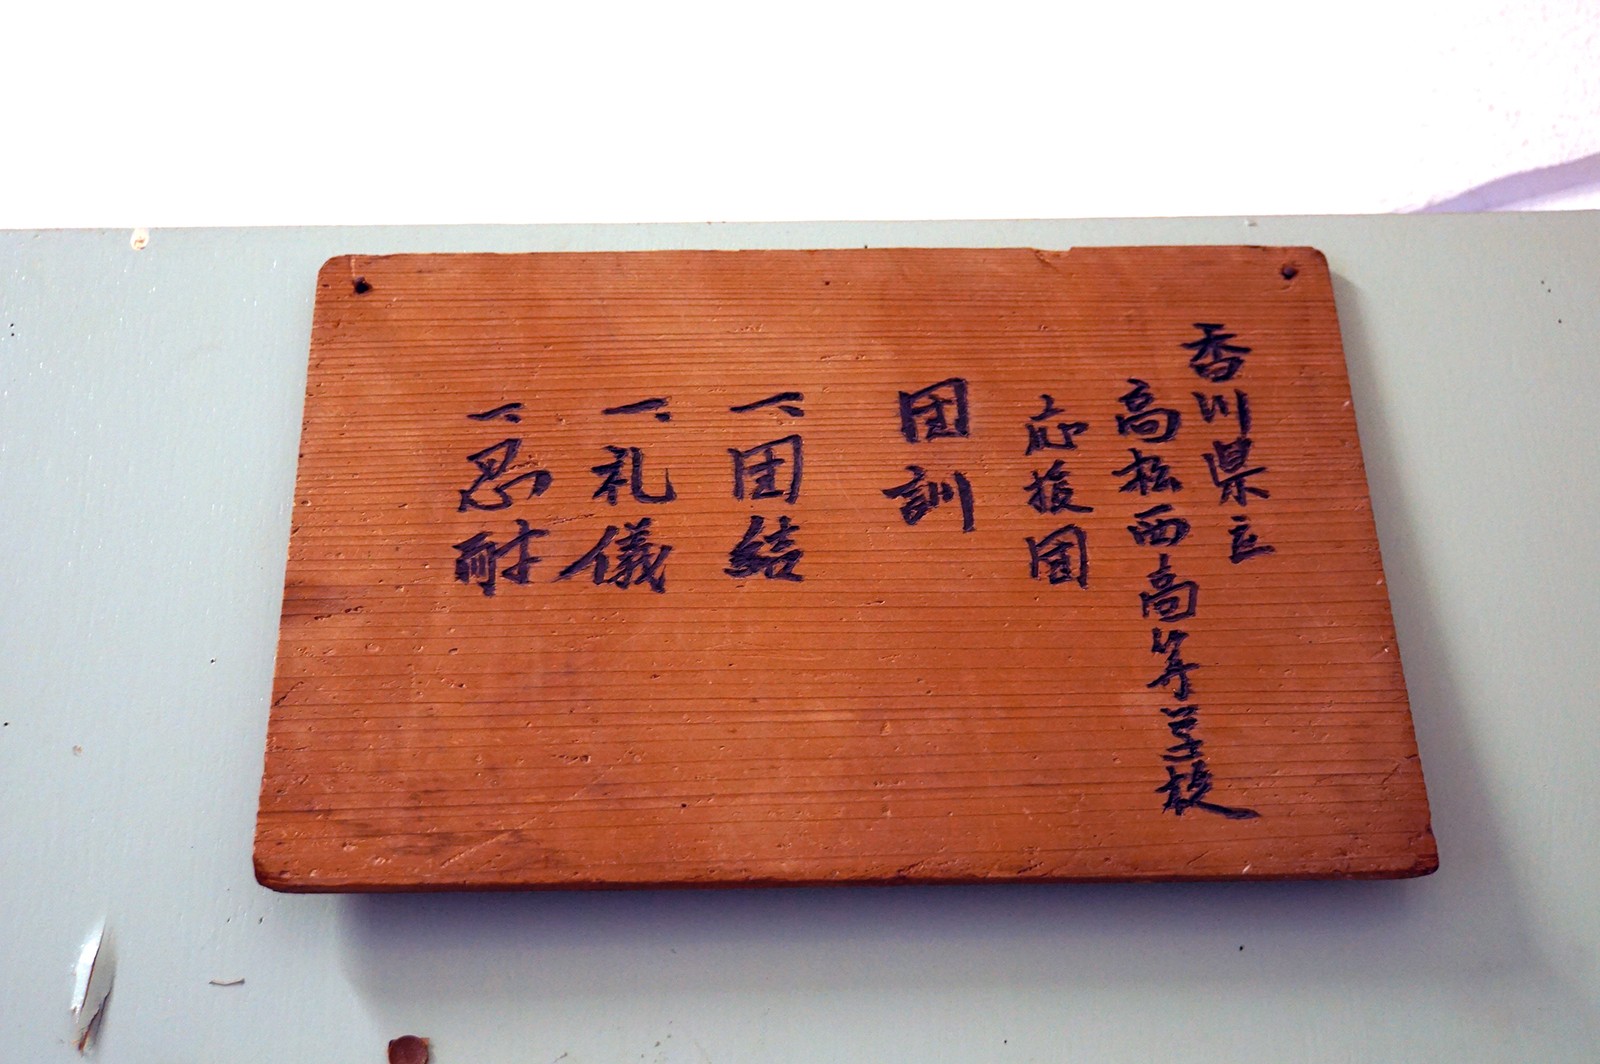 香川県立
高松西高等学校
応援団
団訓
一、団結
一、礼儀
一、忍耐